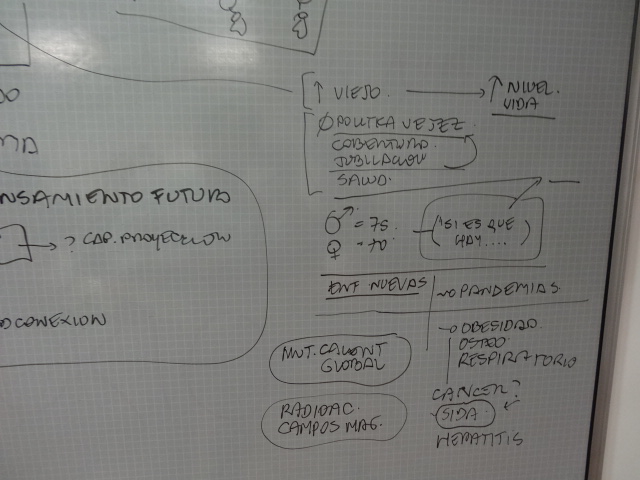 ↑ VIEJO. → ↑ NIVEL.
VIDA
Ø POLITICA VEJEZ.
COBERTURA.
JUBILACION
SALUD.
NSAMIENTO FUTURO
→ ? CAP. PROYECCION
O CONEXION
♂ = 75.
♀ = 70.
(¡SI ES QUE
HAY....)
ENF NUEVAS
→ PANDEMIAS.
→ OBESIDAD.
OSTEO
RESPIRATORIO
MUT. CALENT
GLOBAL
RADIOAC.
CAMPOS MAG.
CANCER?
SIDA.
HEPATITIS